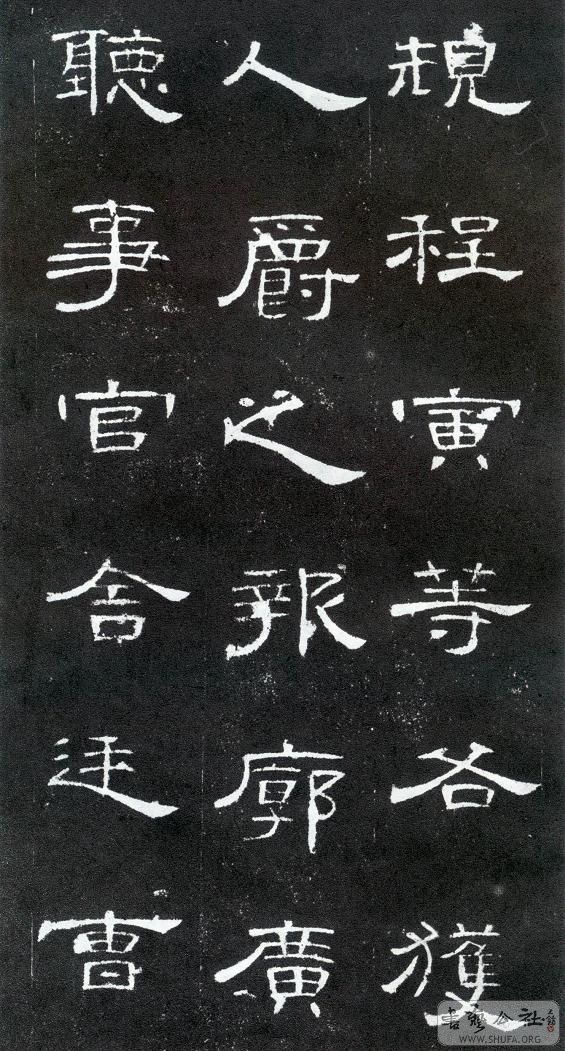 規程寅等各獲
人爵之報廓廣
聽事官舍廷曹
書藝公社
WWW.SHUFA.ORG